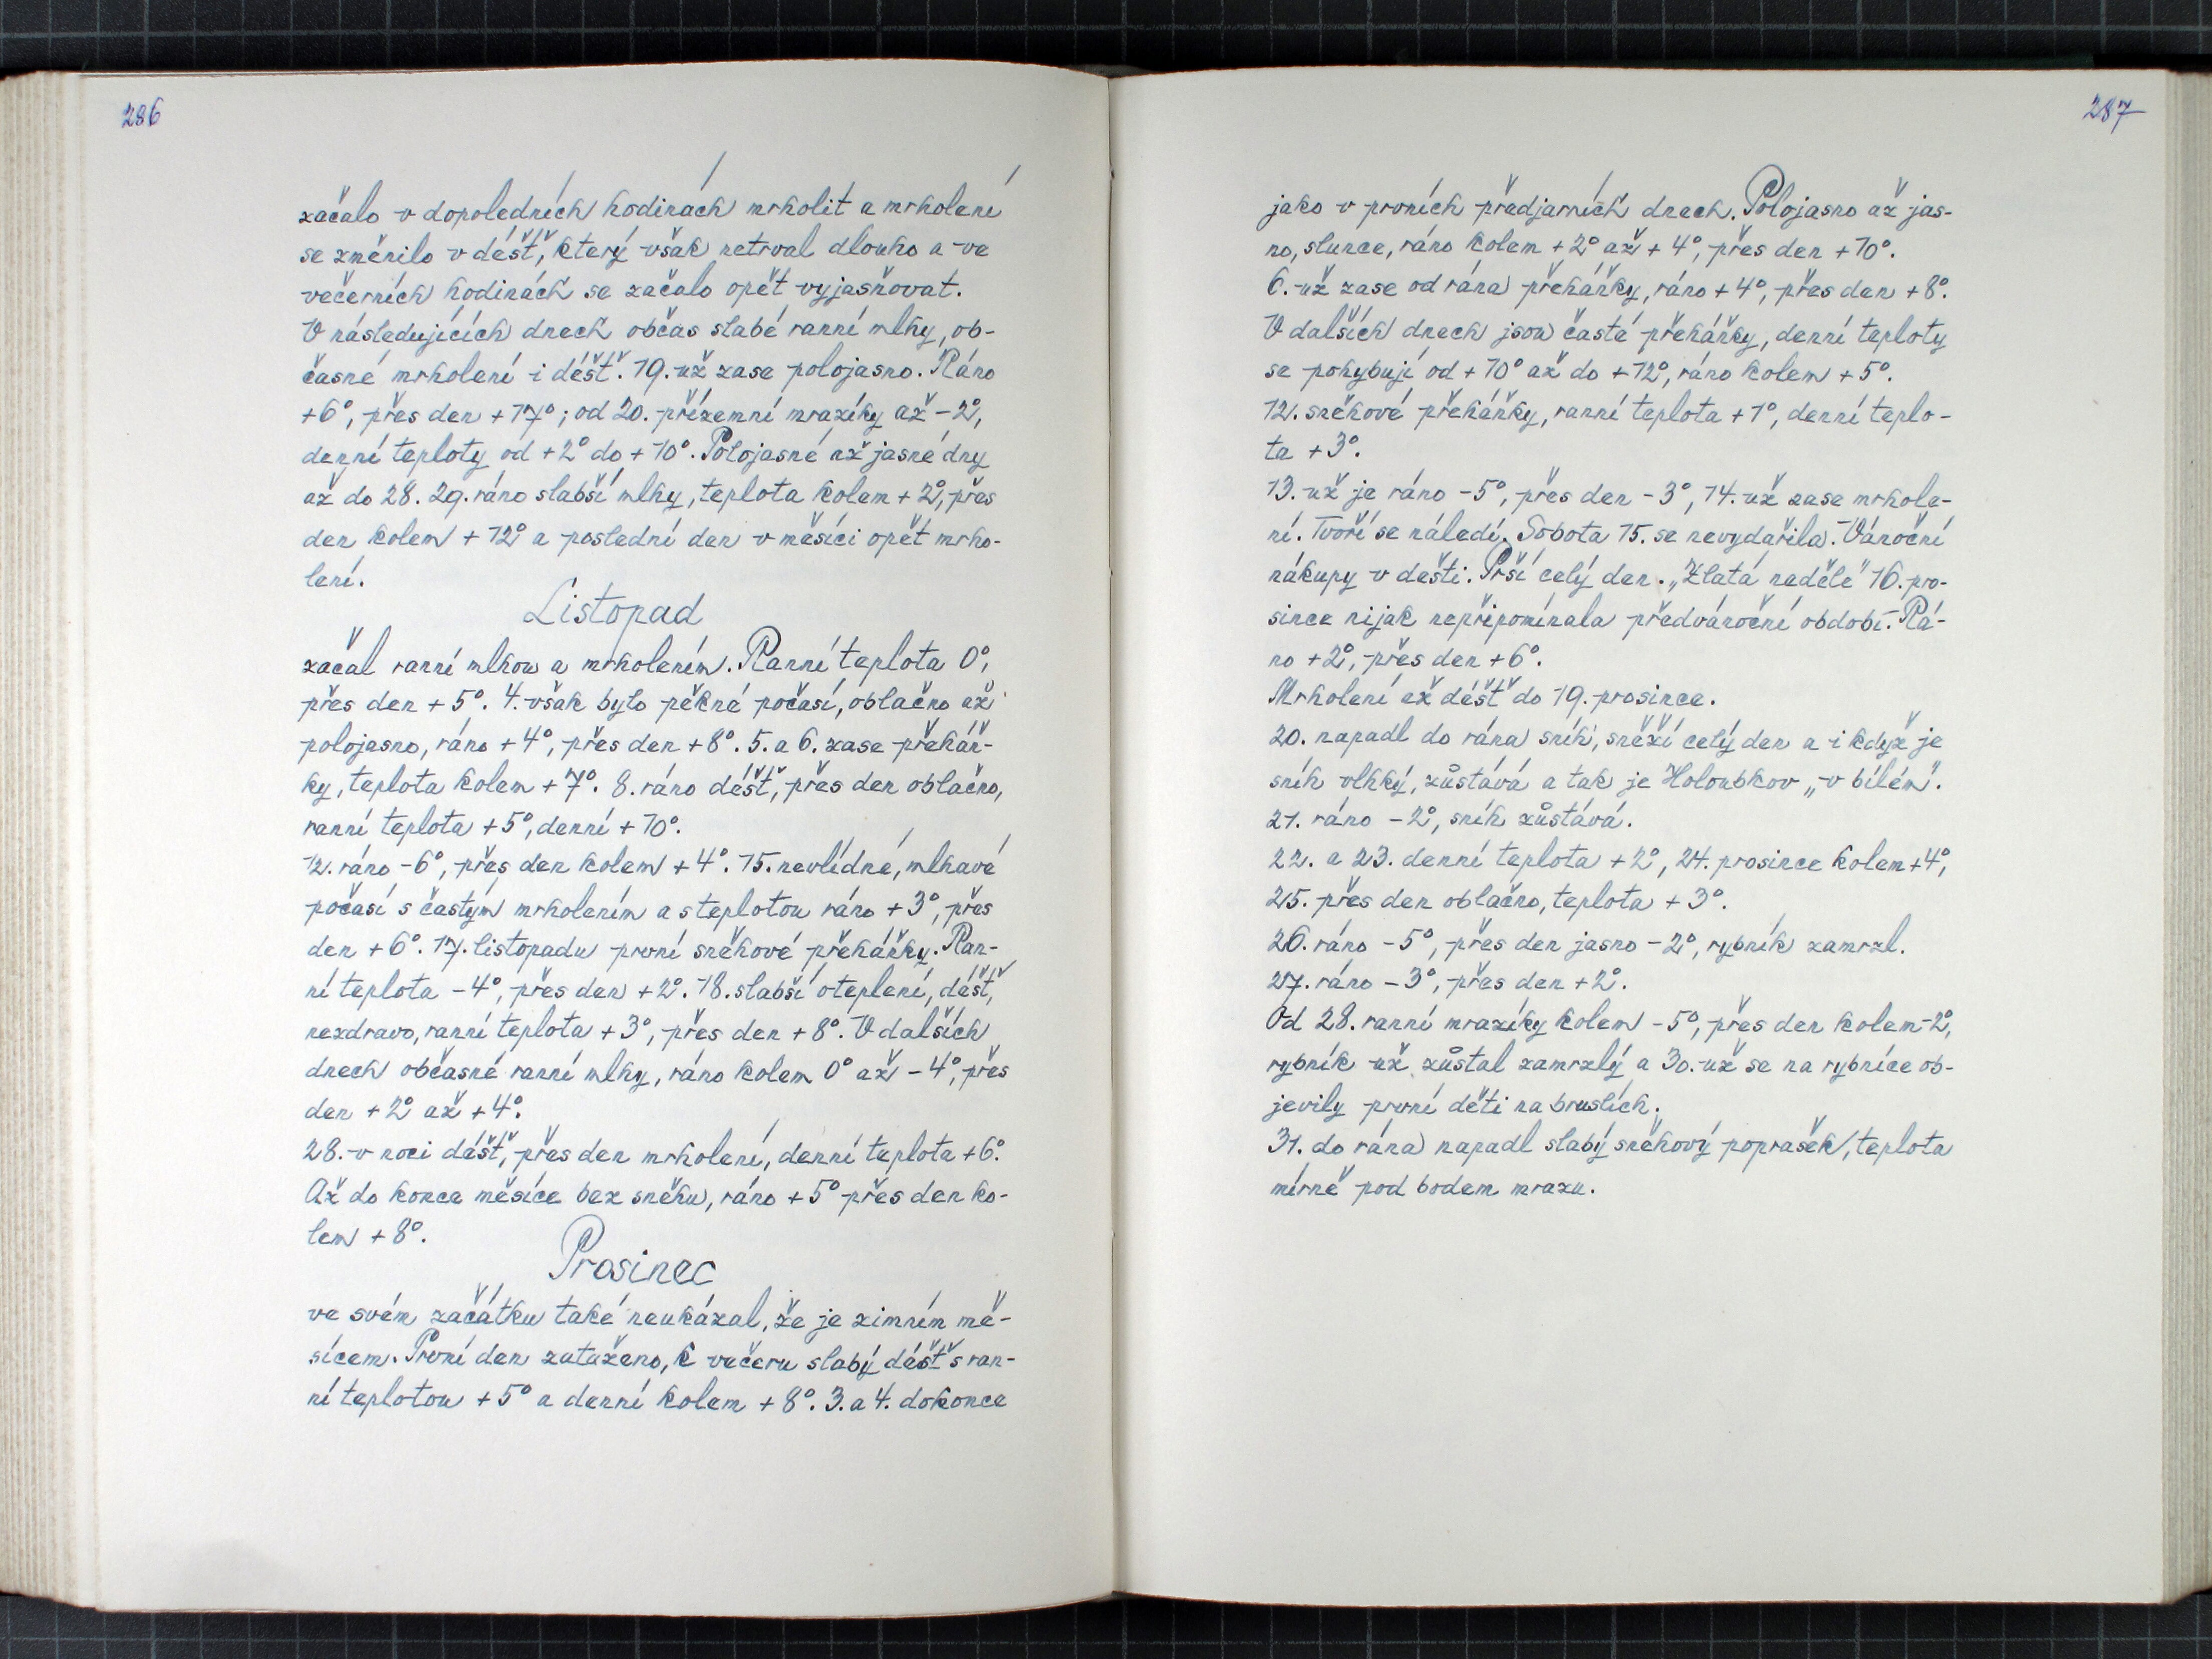 286
začalo v dopoledních hodinách mrholit a mrholení
se změnilo v déšť, který však netrval dlouho a ve
večerních hodinách se začalo opět vyjasňovat.
V následujících dnech občas slabé ranní mlhy, ob-
časné mrholení i déšť. 19. už zase polojasno. Ráno
+6°, přes den +17°; od 20. přízemní mrazíky až -2°,
denní teploty od +2° do +10°. Polojasné až jasné dny
až do 28. 29. ráno slabší mlhy, teplota kolem +2°, přes
den kolem +12° a poslední den v měsíci opět mrho-
lení.
Listopad
začal ranní mlhou a mrholením. Ranní teplota 0°,
přes den +5°. 4. však bylo pěkné počasí, oblačno až
polojasno, ráno +4°, přes den +8°. 5. a 6. zase přeháň-
ky, teplota kolem +7°. 8. ráno déšť, přes den oblačno,
ranní teplota +5°, denní +10°.
12. ráno -6°, přes den kolem +4°. 15. nevlídné, mlhavé
počasí s častým mrholením a s teplotou ráno +3°, přes
den +6°. 17. listopadu první sněhové přeháňky. Ran-
ní teplota -4°, přes den +2°. 18. slabší oteplení, déšť,
nezdravo, ranní teplota +3°, přes den +8°. V dalších
dnech občasné ranní mlhy, ráno kolem 0° až -4°, přes
den +2° až +4°.
28. v noci déšť, přes den mrholení, denní teplota +6°.
Až do konce měsíce bez sněhu, ráno +5° přes den ko-
lem +8°.
Prosinec
ve svém začátku také neukázal, že je zimním mě-
sícem. První den zataženo, k večeru slabý déšť s ran-
ní teplotou +5° a denní kolem +8°. 3. a 4. dokonce
287
jako v prvních předjarních dnech. Polojasno až jas-
no, slunce, ráno kolem +2° až +4°, přes den +10°.
6. už zase od rána přeháňky, ráno +4°, přes den +8°.
V dalších dnech jsou časté přeháňky, denní teploty
se pohybují od +10° až do +12°, ráno kolem +5°.
12. sněhové přeháňky, ranní teplota +1°, denní teplo-
ta +3°.
13. už je ráno -5°, přes den -3°, 14. už zase mrhole-
ní. Tvoří se náledí. Sobota 15. se nevydařila. Vánoční
nákupy v dešti. Prší celý den. „Zlatá neděle" 16. pro-
since nijak nepřipomínala předvánoční období. Rá-
no +2°, přes den +6°.
Mrholení až déšť do 19. prosince.
20. napadl do rána sníh, sněží celý den a i když je
sníh vlhký, zůstává a tak je Holoubkov „v bílém".
21. ráno -2°, sníh zůstává.
22. a 23. denní teplota +2°, 24. prosince kolem +4°,
25. přes den oblačno, teplota +3°.
26. ráno -5°, přes den jasno -2°, rybník zamrzl.
27. ráno -3°, přes den +2°.
Od 28. ranní mrazíky kolem -5°, přes den kolem -2°,
rybník už zůstal zamrzlý a 30. už se na rybníce ob-
jevily první děti na bruslích.
31. do rána napadl slabý sněhový poprašek, teplota
mírně pod bodem mrazu.